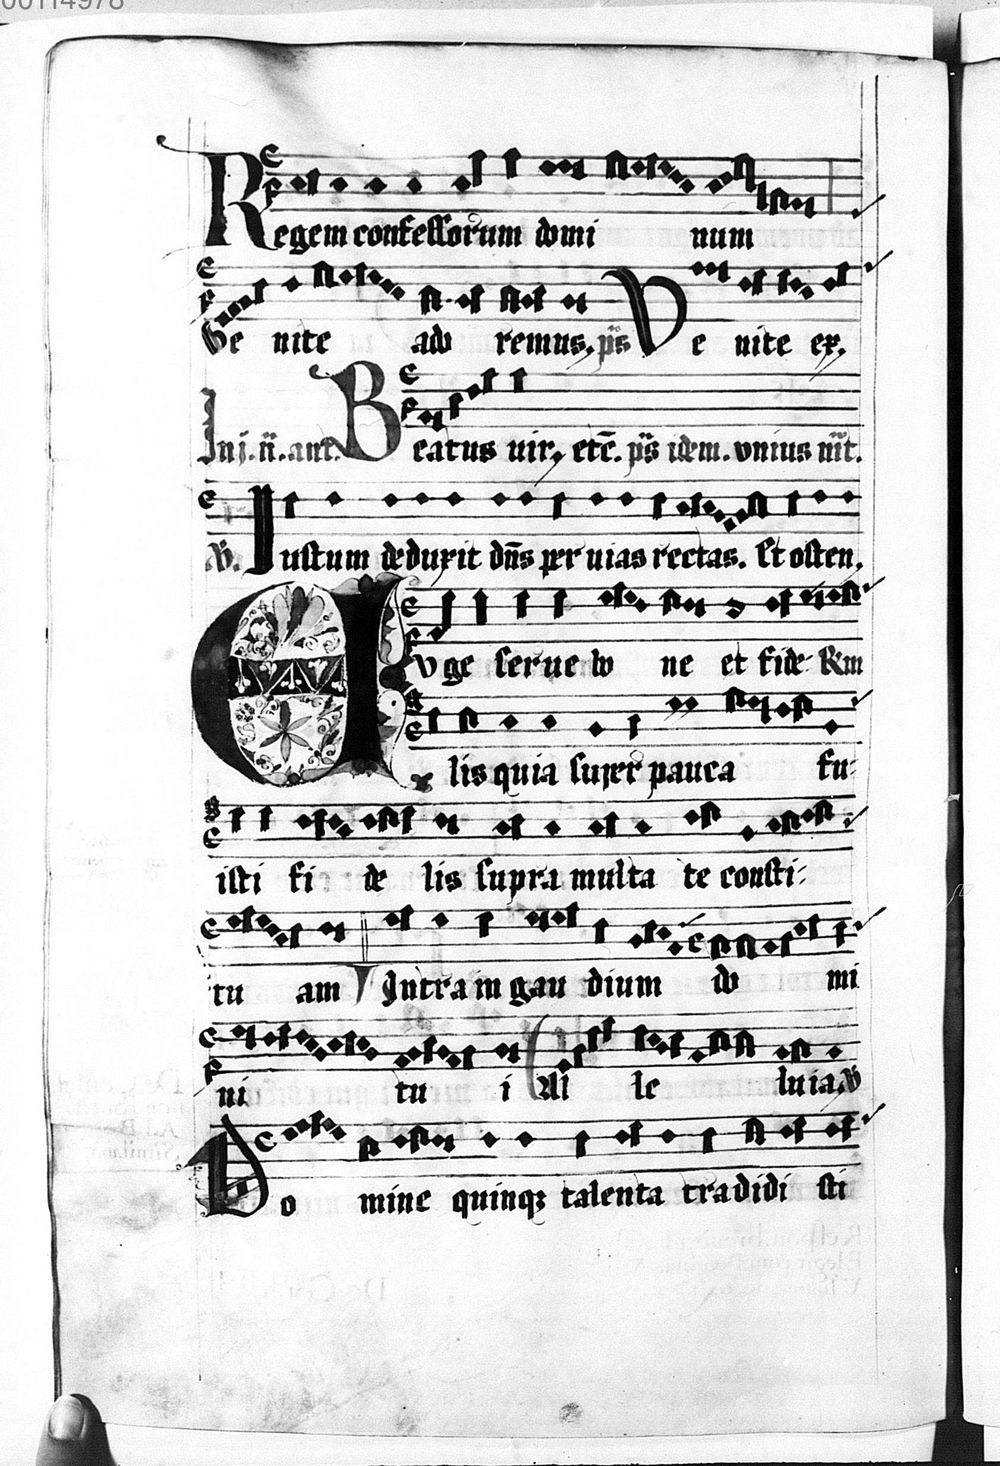 00114978
Regem confessorum domi num
Ve nite ad remus. ps̄ Ve nite ex.
In j. n̄. ant. Beatus uir, etc̄. ps̄ idem. vnius mr̄t.
W. Iustum deduxit dn̄s per uias rectas. Et osten.
Euge serue bo ne et fide R̄m
lis quia super pauca fu
isti fi de lis supra multa te consti
tu am V Intra in gau dium do mi
ni tu i Al le luia. V
Do mine quinqꝫ talenta tradidi sti